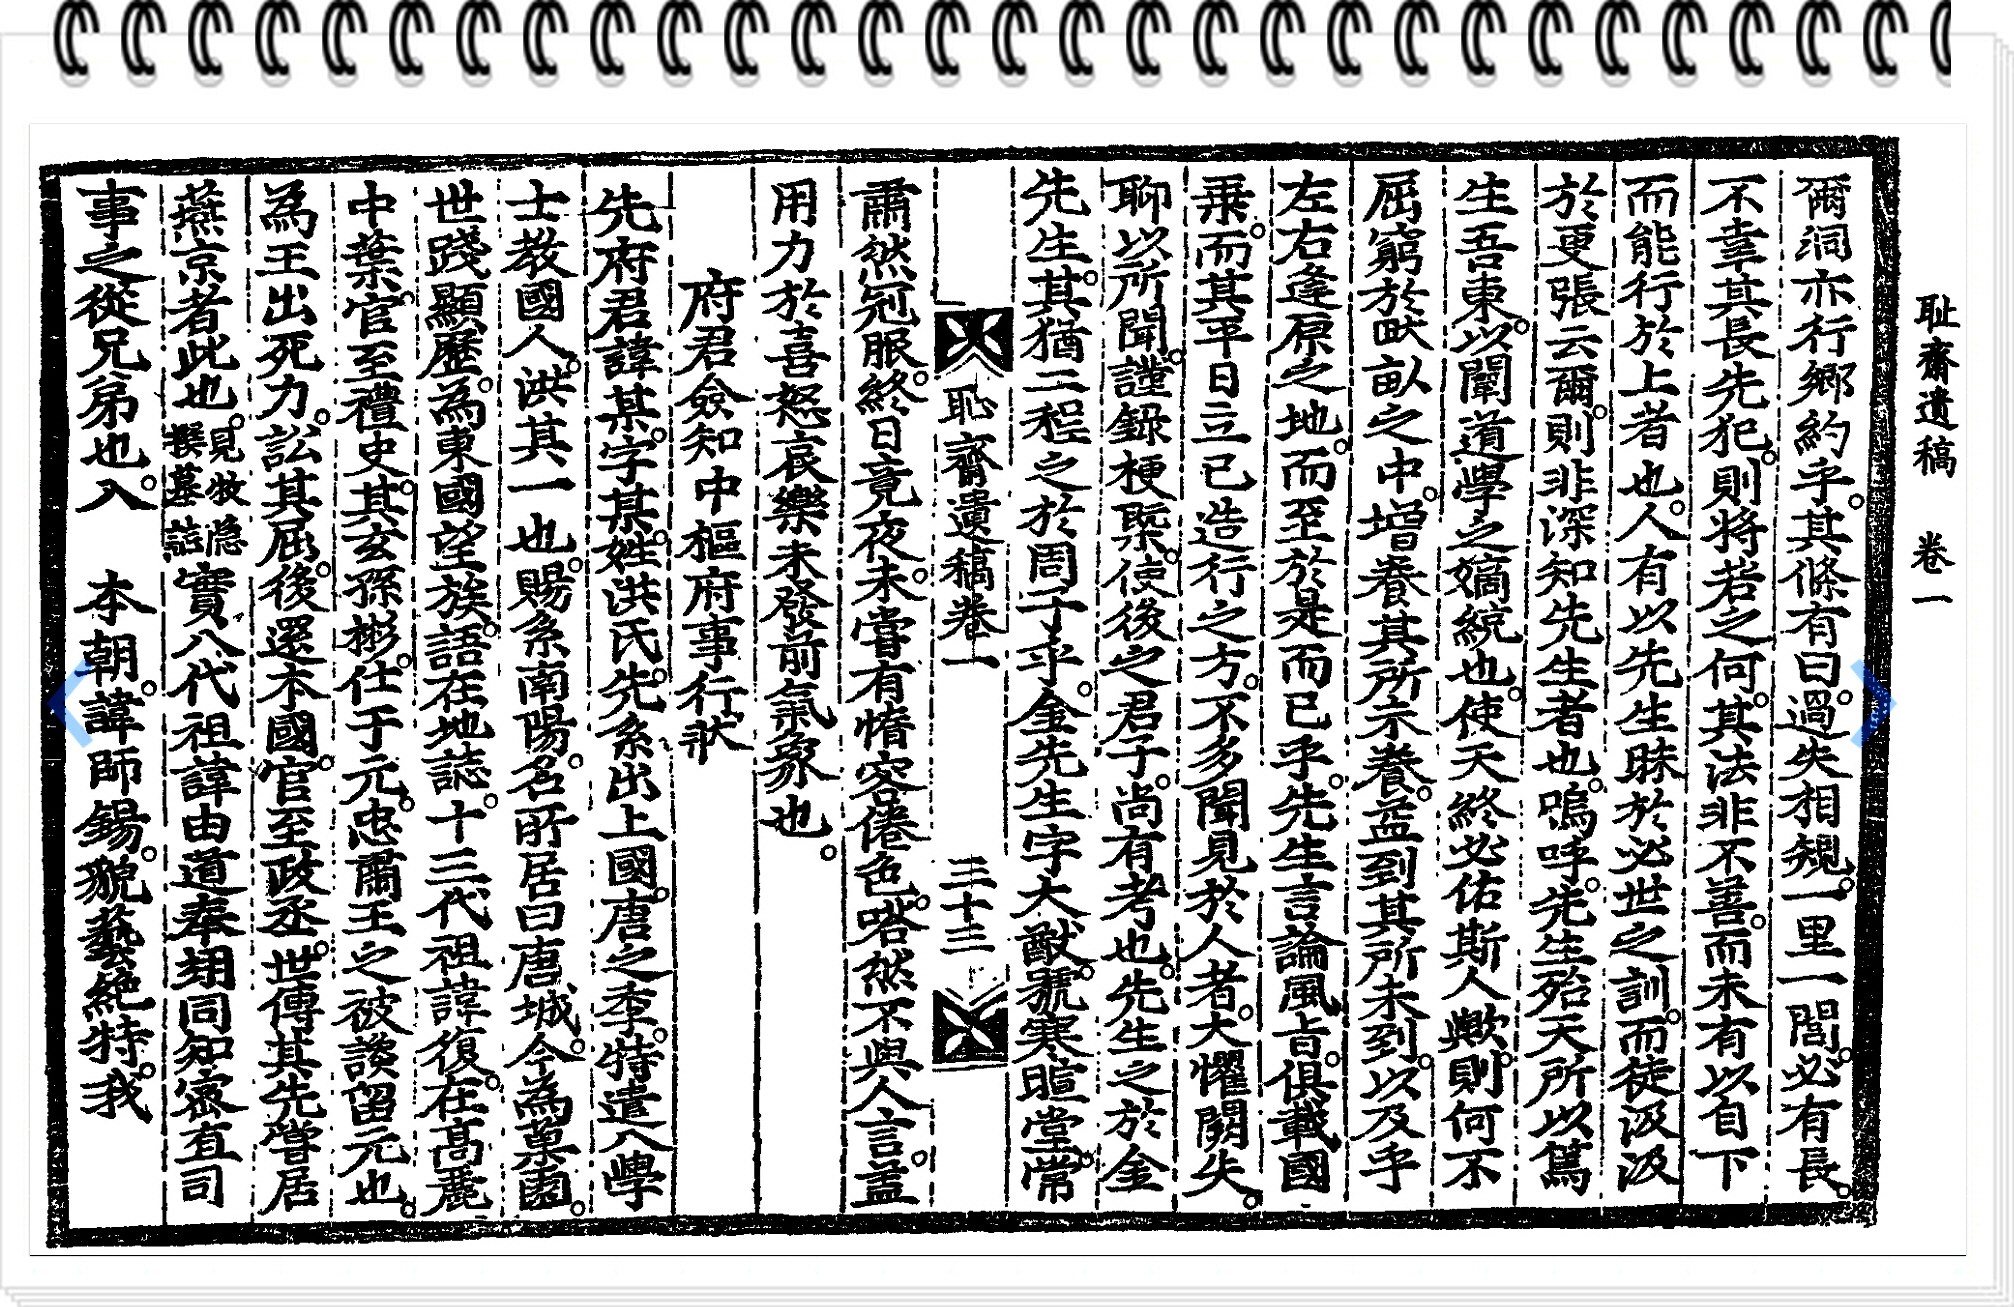 耻齋遺稿 卷一
爾洞亦行鄉約乎。其條有曰。過失相規。一里一閭。必有長。
不幸其長先犯。則將若之何。其法非不善。而未有以自下
而能行於上者也。人有以先生昧於必世之訓。而徒汲汲
於更張云爾。則非深知先生者也。嗚呼。先生殆天所以篤
生吾東。以闡道學之嫡統也。使天終必佑斯人歟。則何不
屈窮於畎畝之中。增養其所示養。益到其所未到。以及乎
左右逢原之地。而至於是而已乎。先生言論風旨。俱載國
乘。而其平日立己造行之方。不多聞見於人者。大懼闕失。
聊以所聞。謹錄梗槩。使後之君子。尚有考也。先生之於金
先生。其猶二程之於周子乎。金先生字大猷。號寒暄堂。常
恥齋遺稿卷一 三十三
肅然冠服。終日竟夜。未嘗有惰容倦色。嗒然不與人言。益
用力於喜怒哀樂未發前氣象也。
府君僉知中樞府事行狀
先府君諱某。字某。姓洪氏。先系出上國。唐之季。特遣八學
士教國人。洪其一也。賜系南陽。名所居曰唐城。今為菓園。
世踐顯歷。為東國望族。語在地誌。十三代祖諱復。在高麗
中葉。官至禮史。其玄孫彬。仕于元。忠肅王之被譖留元也。
為王出死力。訟其屈。後還本國。官至政丞。世傳其先嘗居
燕京者此也。見牧隱撰墓誌實八代祖諱由道奉翊同知密直司
事之從兄弟也。入 本朝。諱師錫。貌藝絕特。我